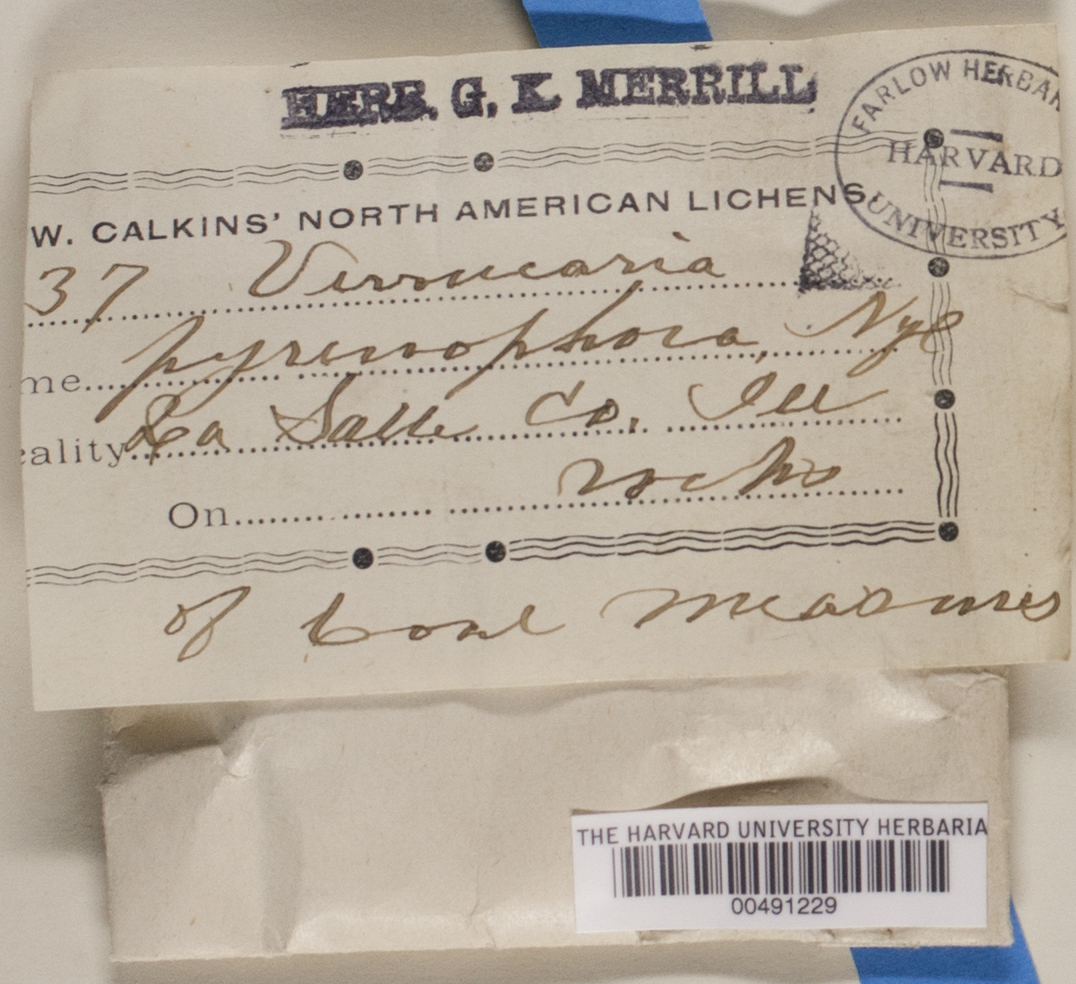 HERB. G. K. MERRILL
FARLOW HERBAR
HARVARD
UNIVERSITY
W. CALKINS' NORTH AMERICAN LICHENS
37 Verrucaria
me pyrenophora, Nyl
cality La Salle Co. Ill
On rocks
of Coal Measures
THE HARVARD UNIVERSITY HERBARIA
00491229